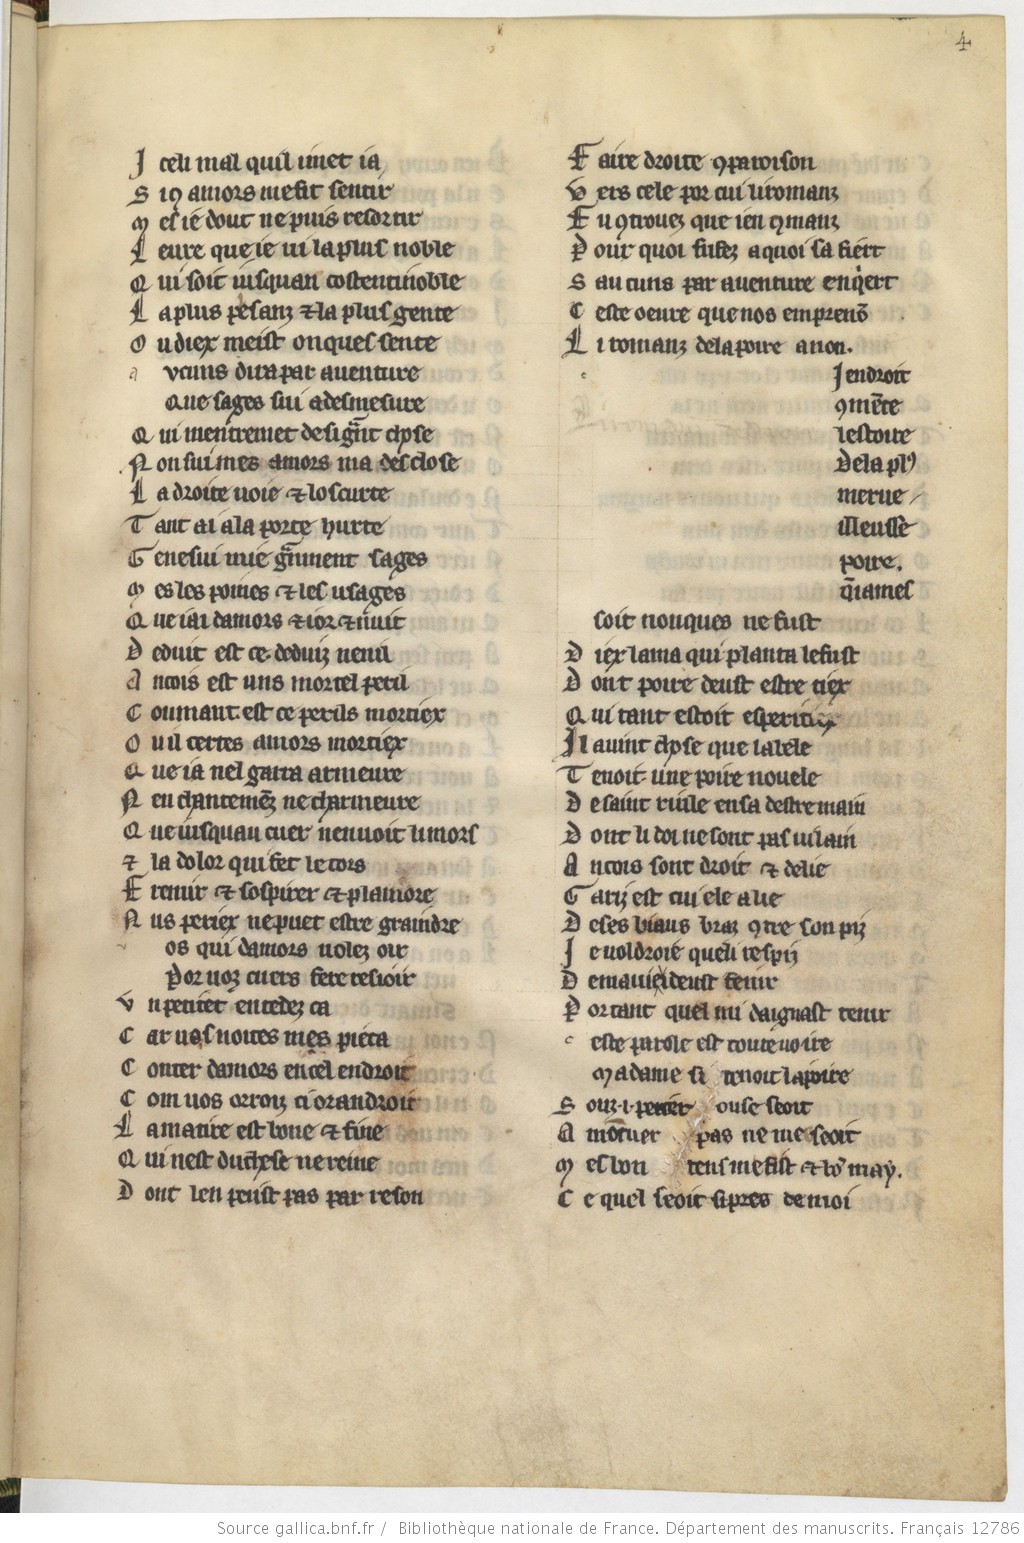 4
J celi mal quil i met ia
S iq amors me fit sentir
M es ie dout ne puis resortir
L eure que ie ui la plus noble
Q ui soit iusquan costentinoble
L a plus pesanz & la plus gente
O u diex meist onques sente
a vcuns dira par auenture
Que sages sui a desmesure
Q ui mentremet de sigñt chose
N on sui mes amors ma desclose
L a droite uoie & loscurte
T ant ai a la porte hurte
G e ne sui mie g̃nment sages
M es les poines & les usages
Q ue iai damors & ior & nuit
D eduit est ce deduiz nenil
A ncois est uns mortel peril
C oumant est ce perils mortiex
O uil certes amors mortiex
Q ue ia nel garra armeure
N en chantemēz ne charmeure
Q ue iusquau cuer nenuoit li mors
& la dolor qui fet le cors
F remir & sospirer & plaindre
N us periex ne puet estre graindre
os qui damors uolez oir
Por uoz cuers fere resioir
V n petitet entendez ca
C ar uos noites mes pieca
C onter damors en cel endroit
C om uos orroiz ci orandroit
L a matire est bone & fine
Q ui nest duchese ne reine
D ont len peust pas par reson
F aire droite 9paroison
V ers cele por cui li romanz
E u 9trouez que ien 9manz
P our quoi fu fez a quoi sa fiert
S aucuns par auenture enq̃ert
C este oeure que nos emprenõ
L i romanz de la poire a non.
J endroit
9mēte
lestoire
De la pl9
merue
illeusse
poire.
q̃iames
soit nonques ne fust
D iex lama qui planta le fust
D ont poire deust estre tiex
Q ui tant estoit esperitiex
Il auint chose que la bele
T enoit une poire nouele
D e saint ruile en sa destre main
D ont li doi ne sont pas uilain
A ncois sont droit & delie
G ariz est cui ele a lie
D e ses biaus braz 9tre son piz
J e uoldroie que li respiz
D e ma uie deust fenir
P or tant quel mi daignast tenir
c este parole est toute uoire
Madame si tenoit la poire
S ouz .i. perier ou se seoit
A mon cuer pas ne me seoit
M es bon tens me fist & lo9 may.
C e quel seoit si pres de moi
Source gallica.bnf.fr / Bibliothèque nationale de France. Département des manuscrits. Français 12786